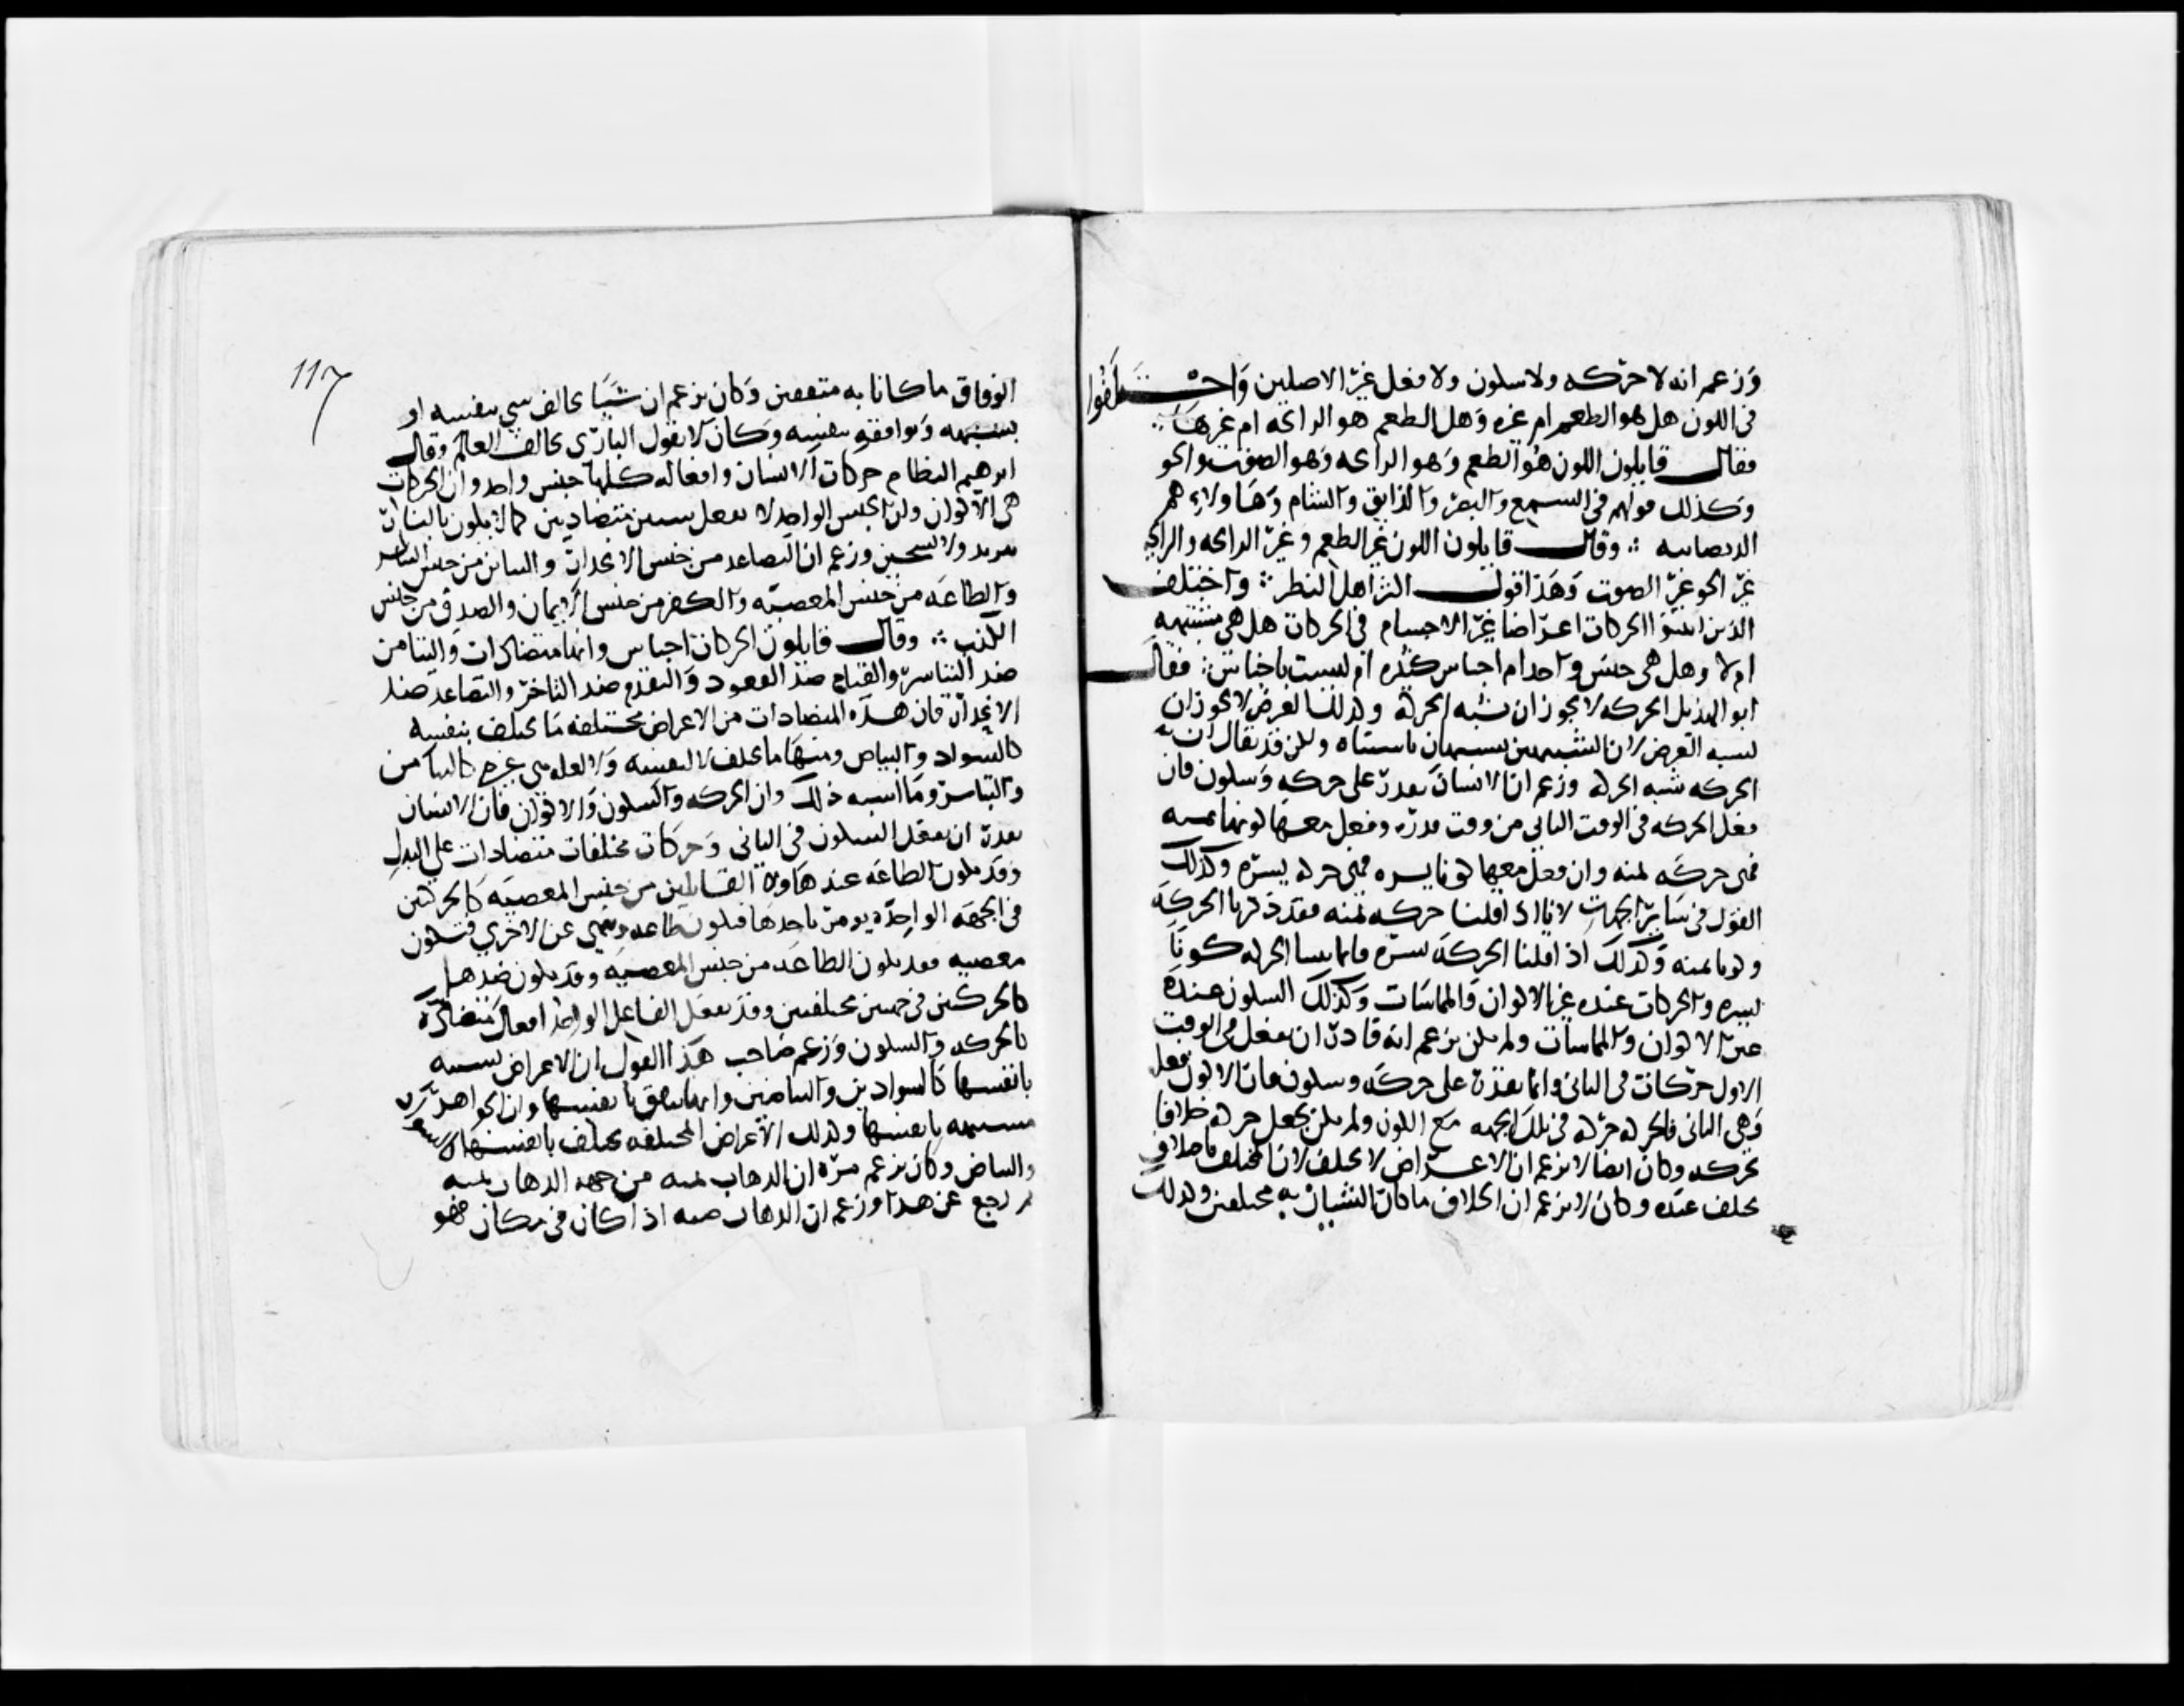 وزعم انه لا حركه ولا سكون ولا فعل غير الاصلين واختلفوا
في اللون هل هو الطعم ام غيره وهل الطعم هو الرايحه ام غيرها
فقال قايلون اللون هو الطعم وهو الرايحه وهو الصوت والحو
وكذلك قولهم في السمع والبصر والذايق والشام وهاولاء هم
الديصانيه ∴ وقال قايلون اللون غير الطعم وغير الرايحه والرايحه
غير الحو غير الصوت وهذا قول اكثر اهل النظر ∴ واختلف
الذين اثبتوا الحركات اعراضا غير الاجسام في الحركات هل هي مشتبهه
ام لا وهل هي جنس واحد ام اجناس كثيره ام ليست باجناس ∴ فقال
ابو الهذيل الحركه لا يجوز ان تشبه الحركه وكذلك العرض لا يجوز ان
يشبه العرض لان الشبيهين يشتبهان باشتباه ولكن قد يقال ان
الحركه شبه الحركه وزعم ان الانسان يقدر على حركه وسكون فان
فعل الحركه في الوقت الثاني من وقت قدرته وفعل معها كونا يمنه
فهي حركه يمنه وان فعل معها كونا يسره فهي حركه يسره وكذلك
القول في ساير الجهات لانا اذا قلنا حركه يمنه فقد ذكرنا الحركه
وكونا يمنه وكذلك اذا قلنا الحركه يسره فانما ... الحركه كونا
يسره والحركات عنده غير الاكوان والمماسات وكذلك السكون عنده
غير الاكوان والمماسات ولم يكن يزعم انه قادر ان يفعل في الوقت
الاول حركات في الثاني وانما يقدر على حركه وسكون فاي الاكون فعل
وهي الثاني فالحركه حركه في تلك الجهه مع اللون ولم يكن يجعل حركه خلافا
لحركه وكان ايضا لا يزعم ان الاعراض لا تختلف لان المختلف باختلاف
يختلف عنده وكان لا يزعم ان الخلاف ما كان الشيان به مختلفين وكذلك
117
الوفاق ما كانا به متفقين وكان يزعم ان شيا يخالف شي بنفسه او
يشبهه ويوافقه بنفسه وكان لا يقول الباري يخالف العالم وقال
ابرهيم النظام حركات الانسان وافعاله كلها جنس واحد وان الحركات
هي الاكوان وان الجنس الواحد لا يفعل شيين متضادين كما لا يكون بالنار
تبريد ولا تسخين وزعم ان التصاعد من جنس الانحدار والتيامن من جنس التياسر
والطاعه من جنس المعصيه والكفر من جنس الايمان والصدق من جنس
الكذب ∴ وقال قايلون الحركات اجناس وانها متضادات والتيامن
ضد التياسر والقيام ضد القعود والتقدم ضد التاخر والتصاعد ضد
الانحدار فان هذه المتضادات من الاعراض مختلفه ما يختلف بنفسه
كالسواد والبياض ومنها ما يختلف لا لنفسه ولا لعله هي غيره كالتيامن
والتياسر وما اشبه ذلك وان الحركه والسكون والاكوان فان الانسان
يقدر ان يفعل السكون في الثاني وحركات مختلفات متضادات على البدل
وقد يكون الطاعه عند هاولاء القايلين من جنس المعصيه كالحركتين
في الجهه الواحده يومر باحدها فيكون طاعه وينهى عن الاخرى فيكون
معصيه فقد يكون الطاعه من جنس المعصيه وقد يكون ضدها
كالحركتين في جهتين مختلفتين وقد يفعل الفاعل الواحد افعال متضاده
كالحركه والسكون وزعم صاحب هذا القول ان الاعراض تشتبه
بانفسها كالسوادين والبياضين وانها تتفق بانفسها وان الجواهر
مشتبهه بانفسها وكذلك الاعراض المختلفه تختلف بانفسها كالسواد
والبياض وكان يزعم مره ان الذهاب يمنه من جهه الذهاب يمنه
ثم رجع عن هذا وزعم ان الذهاب ... اذا كان في مكان فهو